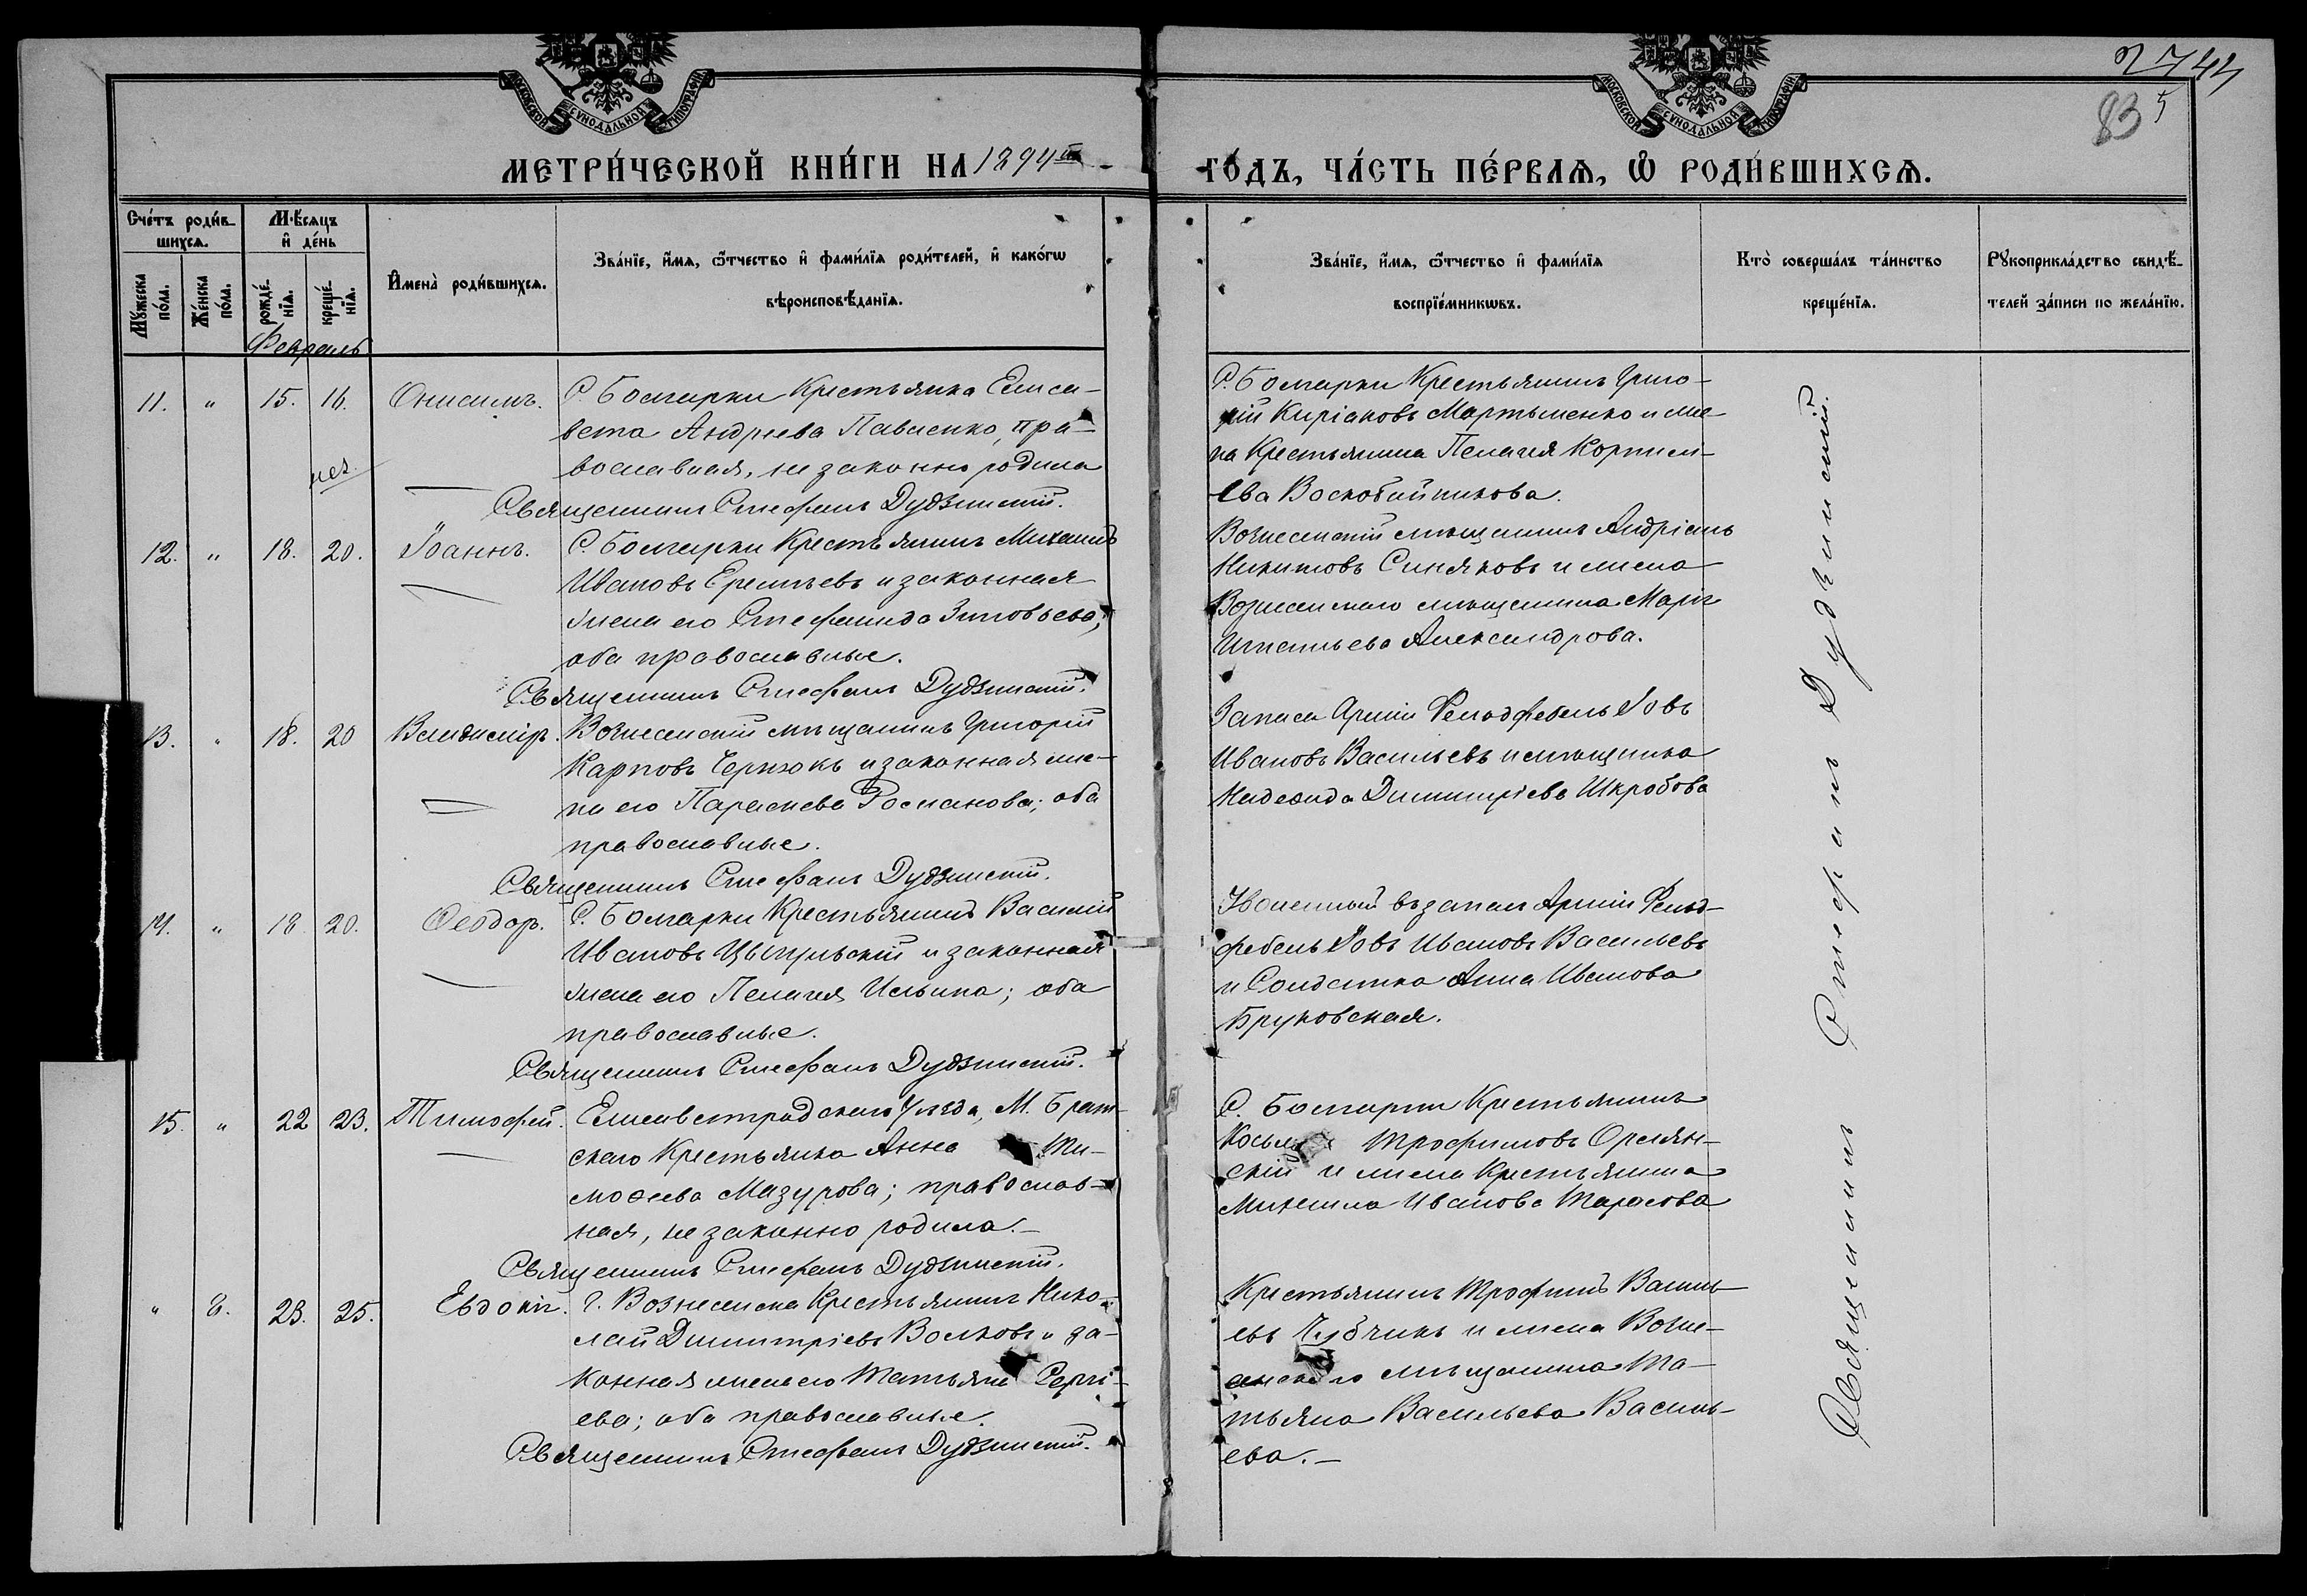 МОСКОВСКОЙ СѴНОДАЛЬНОЙ ТИПОГРАФІИ
МОСКОВСКОЙ СѴНОДАЛЬНОЙ ТИПОГРАФІИ
2744
83
5
МЕТРИ́ЧЕСКОЙ КНИ́ГИ НА 1894й
ГО́ДЪ, ЧА́СТЬ ПЕ́РВАѦ, Ѡ҆ РОДИ́ВШИХСѦ.
Сче́тъ роди́в-
шихсѧ.
Мѣ́сѧцъ
и҆ де́нь
Мꙋ́жеска по́ла.
Же́нска по́ла.
рожде́-нїѧ.
креще́-нїѧ.
И҆мена̀ роди́вшихсѧ.
Зва́нїе, и҆́мѧ, ѻ҆́тчество и҆ фами́лїѧ роди́телей, и҆ како́гѡ
вѣроисповѣ́данїѧ.
Зва́нїе, и҆́мѧ, ѻ҆́тчество и҆ фами́лїѧ
воспрїе́мникѡвъ.
Кто̀ соверша́лъ та́инство
креще́нїѧ.
Рꙋкоприкла́дство свидѣ́-
телей за́писи по жела́нїю.
Февраль
11. " 15. 16. Онисимъ. С. Болгарки Крестьянка Елиса-
вета Андреева Павленко, пра-
вославная, незаконно родила
нез.
Священникъ Стефанъ Дудзинскій.
С. Болгарки Крестьянинъ Григо-
рій Киріаковъ Мартыненко и же-
на Крестьянина Пелагея Корнил-
ева Воскобойникова.
12. " 18. 20. Іоаннъ. С. Болгарки Крестьянинъ Михаилъ
Ивановъ Еремѣевъ и законная
жена его Стефанида Зиновьева;
оба православные.
Священникъ Стефанъ Дудзинскій.
Вознесенскій мѣщанинъ Андріанъ
Никитовъ Синяковъ и жена
Вознесенскаго мѣщанина Марія
Игнатьева Александрова.
13. " 18. 20 Владиміръ. Вознесенскій мѣщанинъ Григорій
Карповъ Чернюкъ и законная же-
на его Параскева Романова; оба
православные.
Священникъ Стефанъ Дудзинскій.
Запаса Арміи Фельдфебель Іовъ
Ивановъ Васильевъ и мѣщанка
Надежда Димитріева Шкробова
14. " 18 20. Ѳеодоръ. С. Болгарки Крестьянинъ Василій
Ивановъ Цыпульскій и законная
жена его Пелагея Ильина; оба
православные.
Священникъ Стефанъ Дудзинскій.
Уволенный въ запасъ Арміи Фельд-
фебель Іовъ Ивановъ Васильевъ
и Солдатка Анна Иванова
Бруковская.
15. " 22 23. Тимофей. Елисаветградскаго Уѣзда, М. Брат-
скаго Крестьянка Анна Ти-
моѳеева Мазурова; православ-
ная, незаконно родила.-
Священникъ Стефанъ Дудзинскій.
С. Болгарки Крестьянинъ
Косьма Трофимовъ Орлян-
скій и жена Крестьянина
Михаила Иванова Тарасова
" 23. 25. Евдокія. Г. Вознесенска Крестьянинъ Нико-
лай Димитріевъ Волковъ и за-
конная жена его Татьяна Сергі-
ева; оба православные.
Священникъ Стефанъ Дудзинскій.
Крестьянинъ Трофимъ Василь-
евъ Чубчикъ и жена Возне-
сенскаго мѣщанина Та-
тьяна Васильева Василь-
ева.-
Священникъ Стефанъ Дудзинскій.